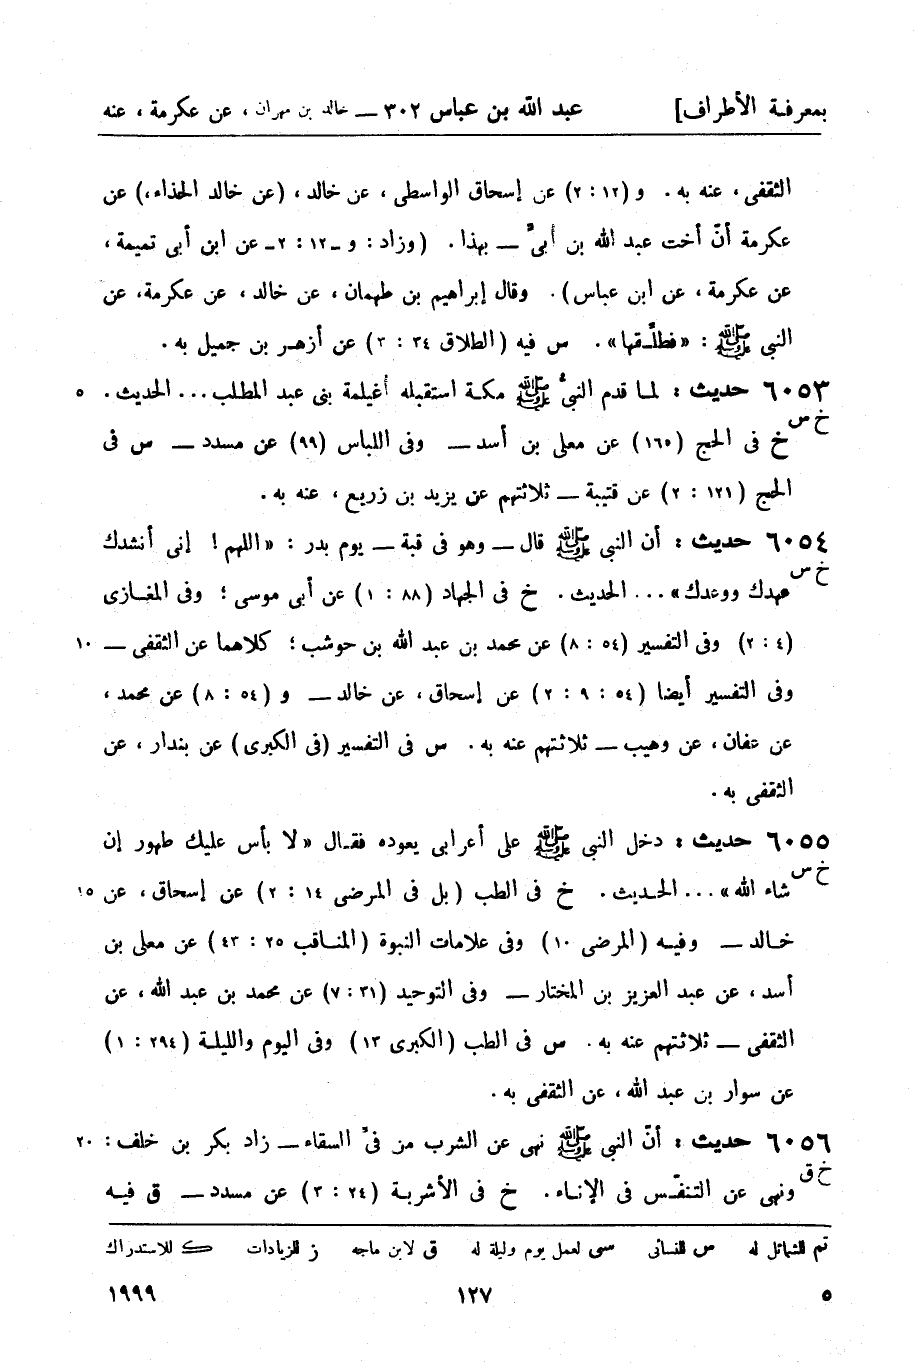 بمعرفة الأطراف] عبد الله بن عباس ٣٠٢ — خالد بن مهران ، عن عكرمة ، عنه
الثقفى ، عنه به . و (١٢ : ٢) عن إسحاق الواسطى ، عن خالد ، (عن خالد الحذاء ،) عن
عكرمة أنّ أخت عبد الله بن أبىّ — بهذا . (وزاد : و -١٢ : ٢- عن ابن أبى تميمة ،
عن عكرمة ، عن ابن عباس) . وقال إبراهيم بن طهمان ، عن خالد ، عن عكرمة ، عن
النبى ﷺ : «فطلَّقها» . س فيه (الطلاق ٣٤ : ٢) عن أزهر بن جميل به .
٦٠٥٣ حديث : لما قدم النبىُّ ﷺ مكة استقبله أغيلمة بنى عبد المطلب ... الحديث . ٥
خ س
خ فى الحج (١٦٥) عن معلى بن أسد — وفى اللباس (٩٩) عن مسدد — س فى
الحج (١٢١ : ٢) عن قتيبة — ثلاثتهم عن يزيد بن زريع ، عنه به .
٦٠٥٤ حديث : أن النبى ﷺ قال — وهو فى قبة — يوم بدر : «اللهم ! إنى أنشدك
خ س
عهدك ووعدك» ... الحديث . خ فى الجهاد (٨٨ : ١) عن أبى موسى ؛ وفى المغازى
(٤ : ٢) وفى التفسير (٥٤ : ٨) عن محمد بن عبد الله بن حوشب ؛ كلاهما عن الثقفى — ١٠
وفى التفسير أيضا (٥٤ : ٩ : ٢) عن إسحاق ، عن خالد — و (٥٤ : ٨) عن محمد ،
عن عفان ، عن وهيب — ثلاثتهم عنه به . س فى التفسير (فى الكبرى) عن بندار ، عن
الثقفى به .
٦٠٥٥ حديث : دخل النبى ﷺ على أعرابى يعوده فقال «لا بأس عليك طهور إن
خ س
شاء الله» ... الحديث . خ فى الطب (بل فى المرضى ١٤ : ٢) عن إسحاق ، عن ١٥
خالد — وفيه (المرضى ١٠) وفى علامات النبوة (المناقب ٢٥ : ٤٣) عن معلى بن
أسد ، عن عبد العزيز بن المختار — وفى التوحيد (٣١ : ٧) عن محمد بن عبد الله ، عن
الثقفى — ثلاثتهم عنه به . س فى الطب (الكبرى ١٣) وفى اليوم والليلة (٢٩٤ : ١)
عن سوار بن عبد الله ، عن الثقفى به .
٦٠٥٦ حديث : أنّ النبى ﷺ نهى عن الشرب من فىّ السقاء — زاد بكر بن خلف : ٢٠
خ ق
ونهى عن التنفّس فى الإناء . خ فى الأشربة (٢٤ : ٣) عن مسدد — ق فيه
تم للشمائل له س للنسائى سى لعمل يوم وليلة له ق لابن ماجه ز للزيادات ك للاستدراك
٥ ١٢٧ ١٩٩٩